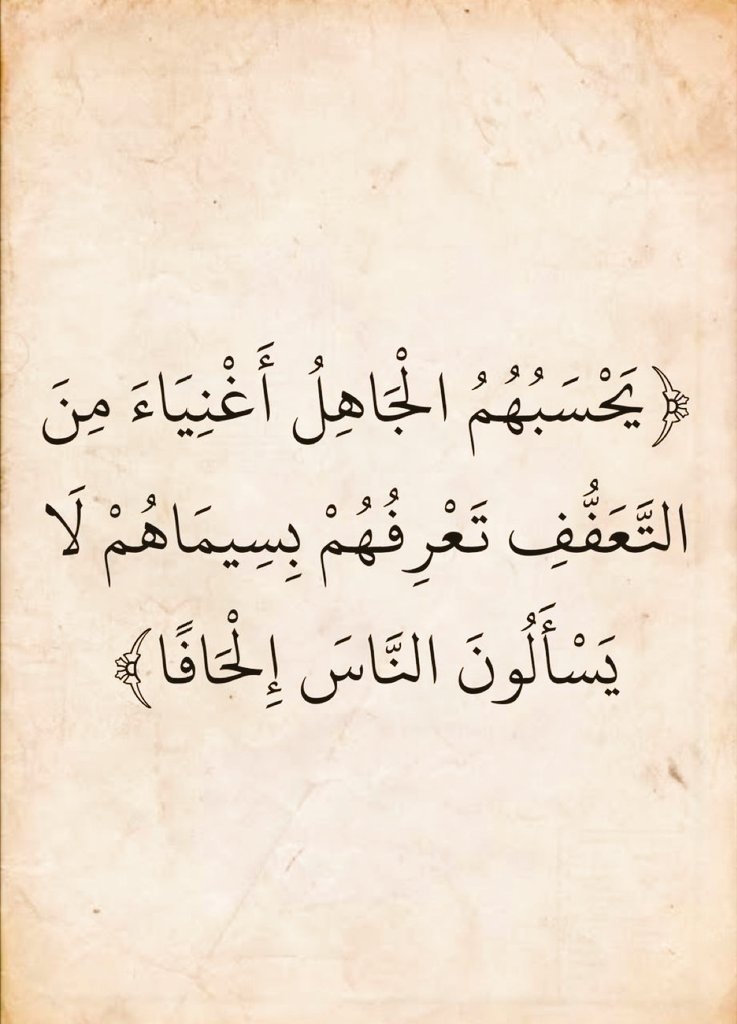 ﴿يَحْسَبُهُمُ الْجَاهِلُ أَغْنِيَاءَ مِنَ
التَّعَفُّفِ تَعْرِفُهُمْ بِسِيمَاهُمْ لَا
يَسْأَلُونَ النَّاسَ إِلْحَافًا﴾